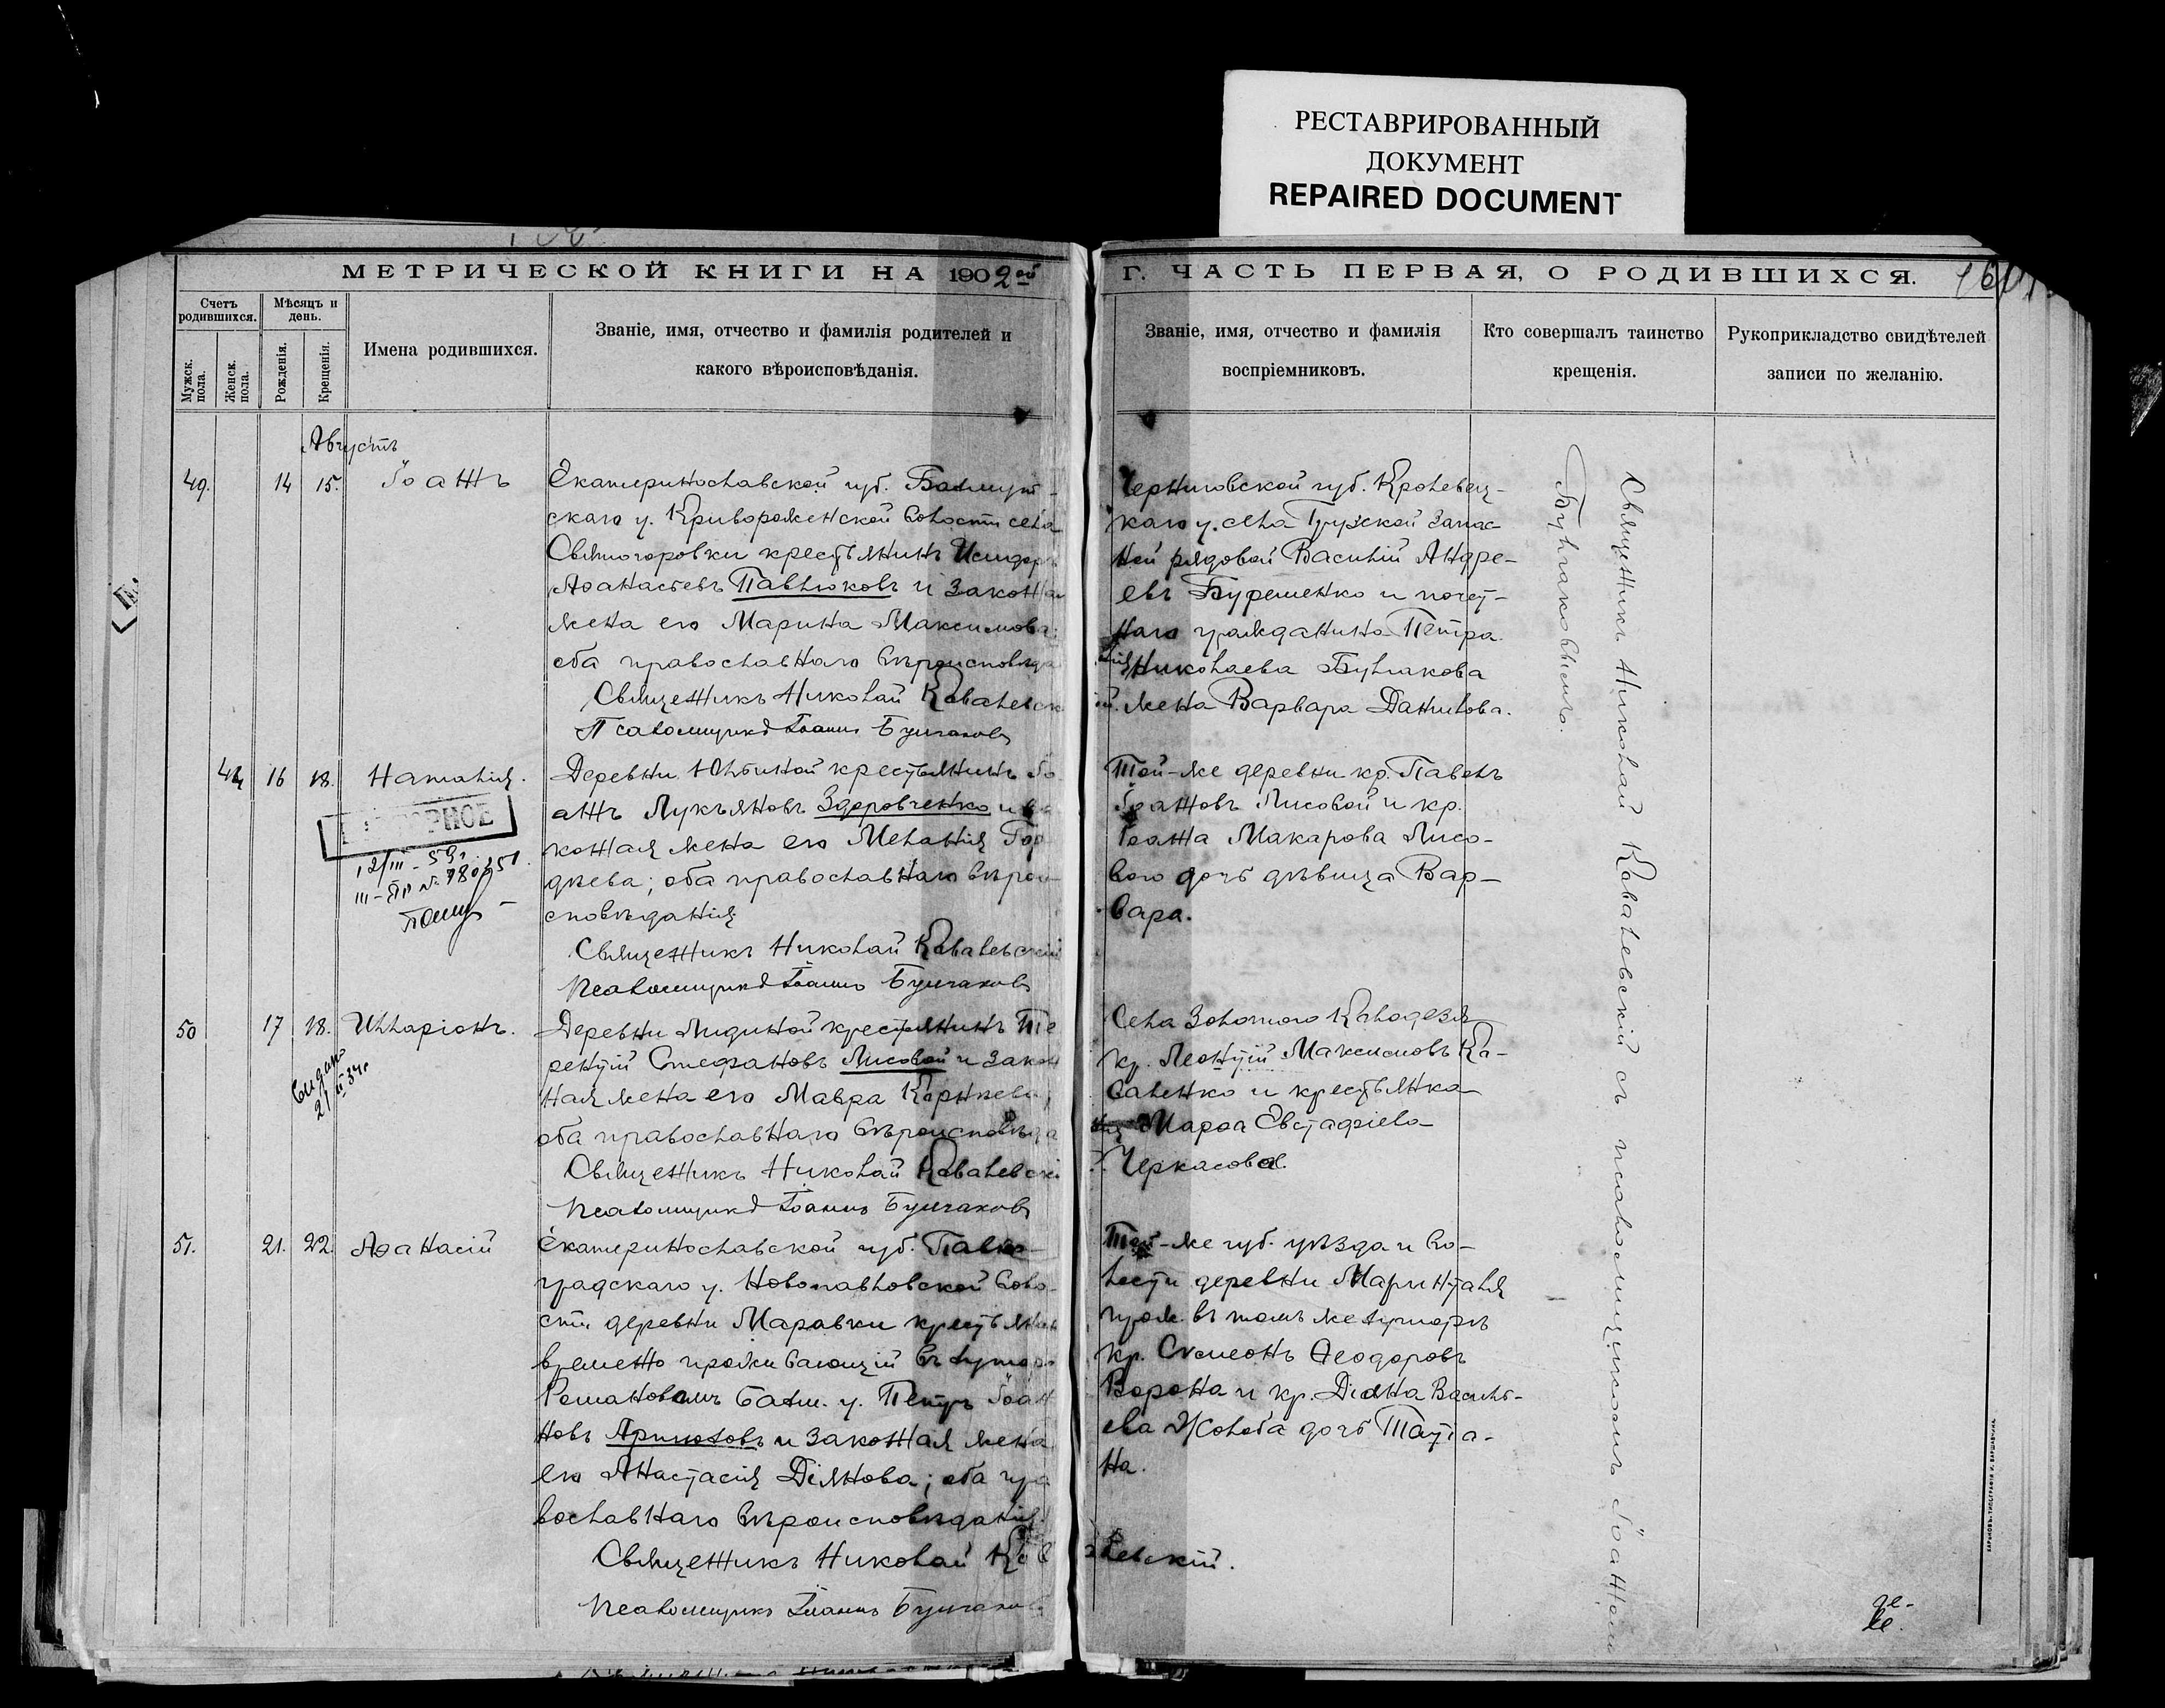 РЕСТАВРИРОВАННЫЙ
ДОКУМЕНТ
REPAIRED DOCUMENT
МЕТРИЧЕСКОЙ КНИГИ НА 1902ой
Г. ЧАСТЬ ПЕРВАЯ, О РОДИВШИХСЯ.
Счетъ родившихся.
Мѣсяцъ и день.
Мужск. пола.
Женск. пола.
Рожденія.
Крещенія.
Имена родившихся.
Званіе, имя, отчество и фамилія родителей и
какого вѣроисповѣданія.
Званіе, имя, отчество и фамилія
воспріемниковъ.
Кто совершалъ таинство
крещенія.
Рукоприкладство свидѣтелей
записи по желанію.
Августъ
49. 14 15. Іоаннъ
Екатеринославской губ. Бахмут-
скаго у. Криворожской волости села
Святогоровки крестьянинъ Исидоръ
Аѳанасьевъ Павлюковъ и закон
жена его Марина Максимова;
оба православнаго вѣроисповѣда
Священникъ Николай Ковалевск
Псаломщикъ Іоаннъ Булгаковъ
Черниговской губ. Кролевец-
каго у. села Грузской запас
ной рядовой Василій Андре-
евъ Буременко и почет-
наго гражданина Петра
Николаева Булгакова
жена Варвара Данилова.
44 16 18. Наталія.
12/III-59г.
Деревни Юльиной крестьянинъ Іо
аннъ Лукьяновъ Здоровченко и за
конная жена его Меланія Гор
дѣева; оба православнаго вѣрои
сповѣданія
Священникъ Николай Ковалевскій
Псаломщикъ Іоаннъ Булгаковъ
Той-же деревни кр. Павелъ
Іоанновъ Лисовой и кр.
Іоанна Макарова Лисо-
вого дочь дѣвица Вар-
вара.
50 17 18. Илларіонъ.
Видано
Деревни Лидиной крестьянинъ Те
рентій Стефановъ Лисовой и закон
ная жена его Мавра Корнѣева;
оба православнаго вѣроисповѣда
Священникъ Николай Ковалевскі
Псаломщикъ Іоаннъ Булгаковъ
Села Золотого Колодезя
кр. Леонтій Максимовъ Ко-
валенко и крестьянка
Марѳа Евстафіева
Черкасова.
51. 21. 22. Аѳанасій
Екатеринославской губ. Павло-
градскаго у. Новопавловской воло-
сти деревни Маравки крестьянин
временно проживающій въ хуторѣ
Романовомъ Бахм. у. Петръ Іоан
новъ и законная жена
его Анастасія Діянова; оба пра
вославнаго вѣроисповѣданія.
Священникъ Николай Ков
алевскій.
Псаломщикъ Іоаннъ Булгаков
Той-же губ. уѣзда и во-
лости деревни Маринталя
прож. въ томъ же хуторѣ
кр. Симеонъ Ѳеодоровъ
Ворона и кр. Діяна Василь-
ева Жолоба дочь Татіа-
на.
Священникъ Николай Ковалевскій съ псаломщикомъ Іоанномъ
Булгаковымъ.